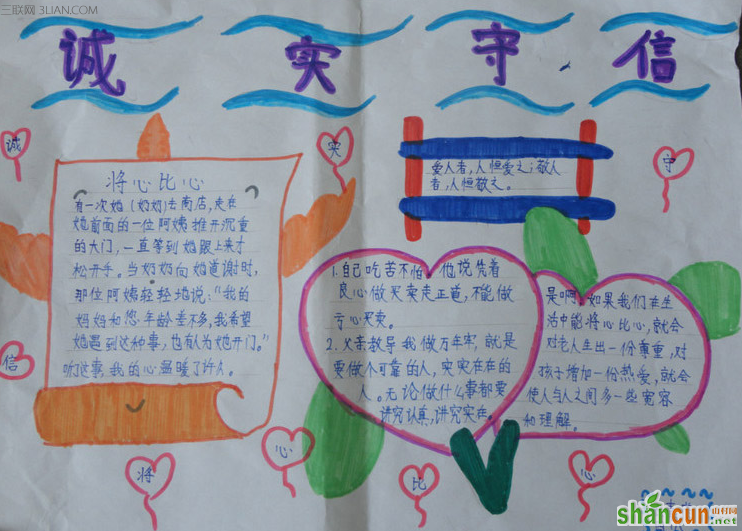 三联网 3LIAN.COM
诚 实 守 信
诚
实
守
信
将
心
比
心
将心比心
有一次她(奶奶)去商店,走在
她前面的一位阿姨推开沉重
的大门,一直等到她跟上来才
松开手。当奶奶向她道谢时,
那位阿姨轻轻地说:“我的
妈妈和您年龄差不多,我希望
她遇到这种事,也有人为她开门。”
听这事,我的心温暖了许久。
爱人者,人恒爱之;敬人
者,人恒敬之。
1.自己吃苦不怕。他说凭着
良心做买卖走正道,不能做
亏心买卖。
2.父亲教导我做万年牢,就是
要做个可靠的人,实实在在的
人。无论做什么事都要
讲究认真,讲究实在。
是啊,如果我们在生
活中能将心比心,就会
对老人生出一份尊重,对
孩子增加一份热爱,就会
使人与人之间多一些宽容
和理解。
shancun
.net